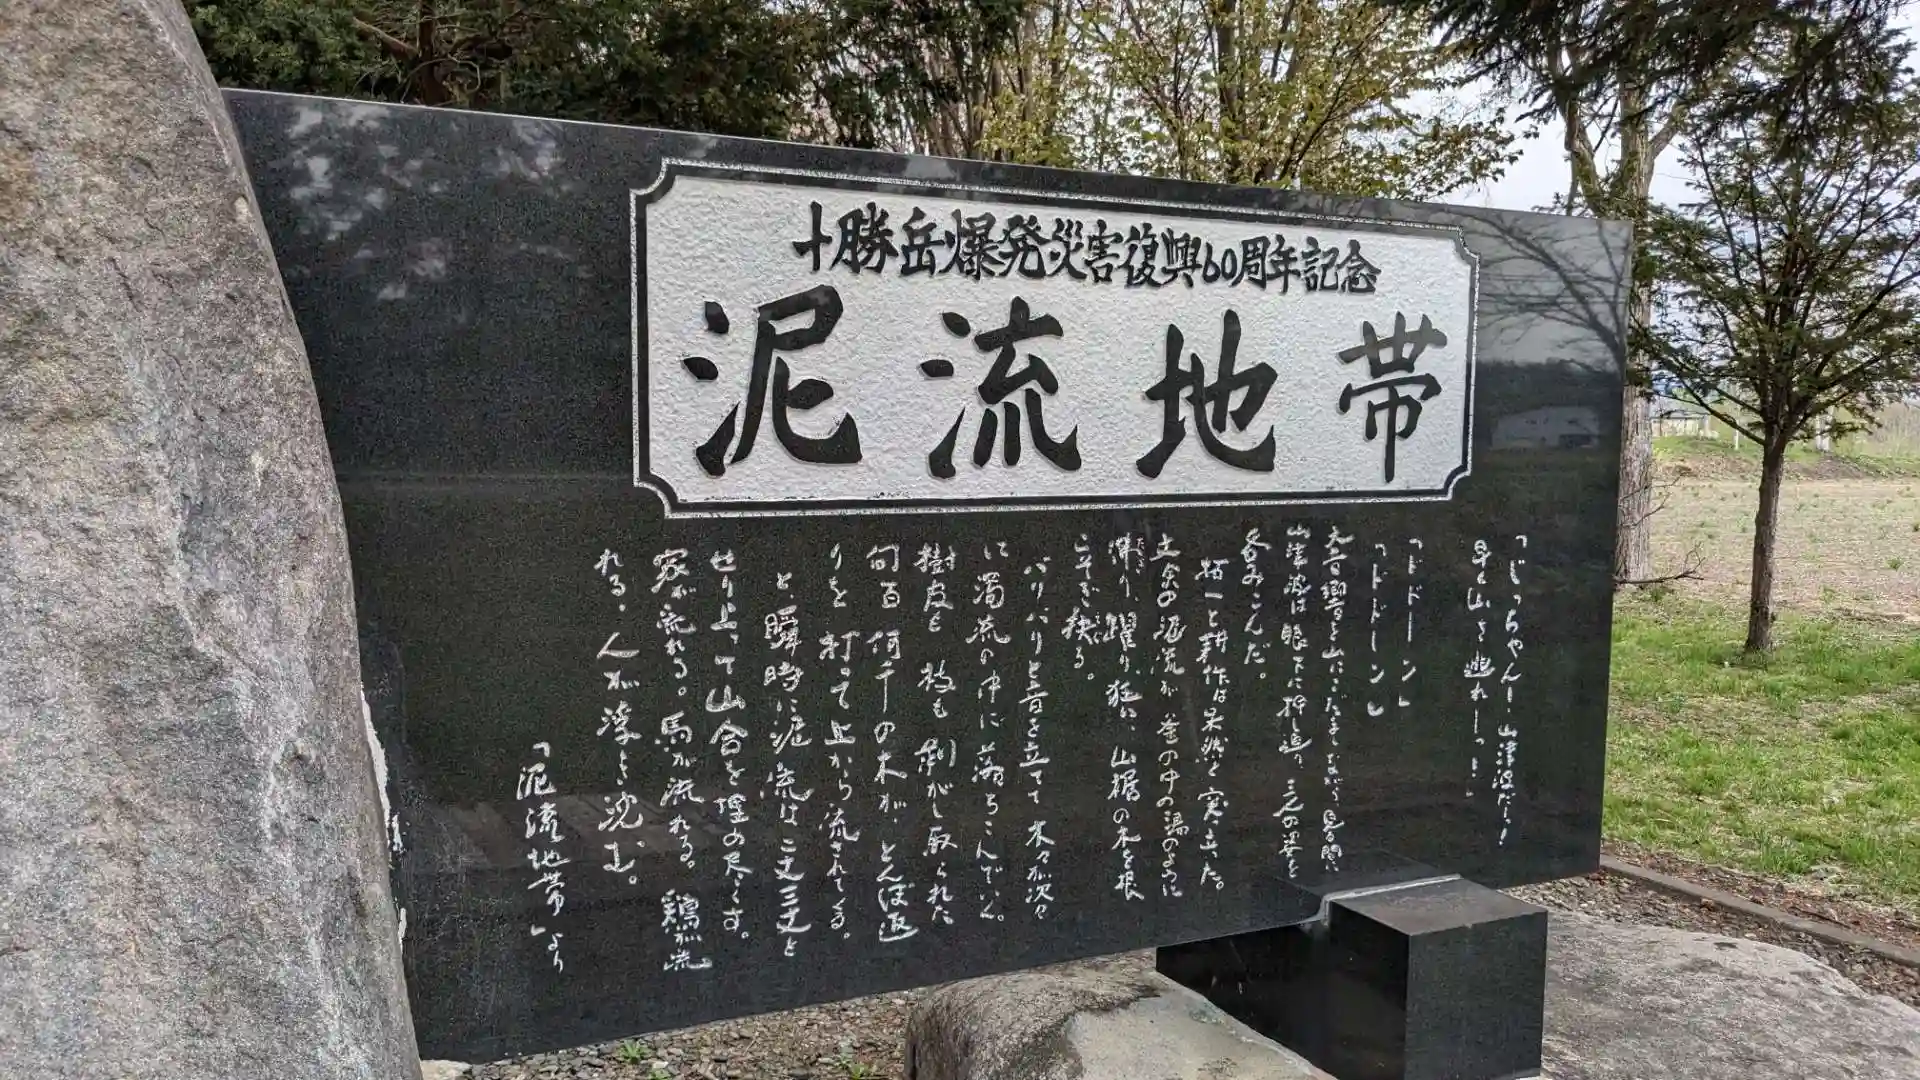 十勝岳爆発災害復興60周年記念
泥流地帯
「じっちゃん！山津波だーっ！
早く山さ逃れーっ！」
「ドドーン」
「ドドドーン」
大音響を山にこだましながら、見る間に
山津波は眼下に押し迫り、三人の家を
呑みこんだ。
拓一と耕作は呆然と突っ立った。
丈余の泥流が釜の中の湯のように
沸り、躍り、狂い、山裾の木を根
こそぎ抉る。
バリバリと音を立てて木々が次々
に濁流の中に落ちこんでいく。
樹皮も枝も剥がし取られた
何百何千の木が、とんぼ返
りを打って上から流されてくる。
と、瞬時に泥流は二丈三丈と
せり上って山合を埋め尽くす。
家が流れる。馬が流れる。鶏が流
れる。人が浮き沈む。
「泥流地帯」より